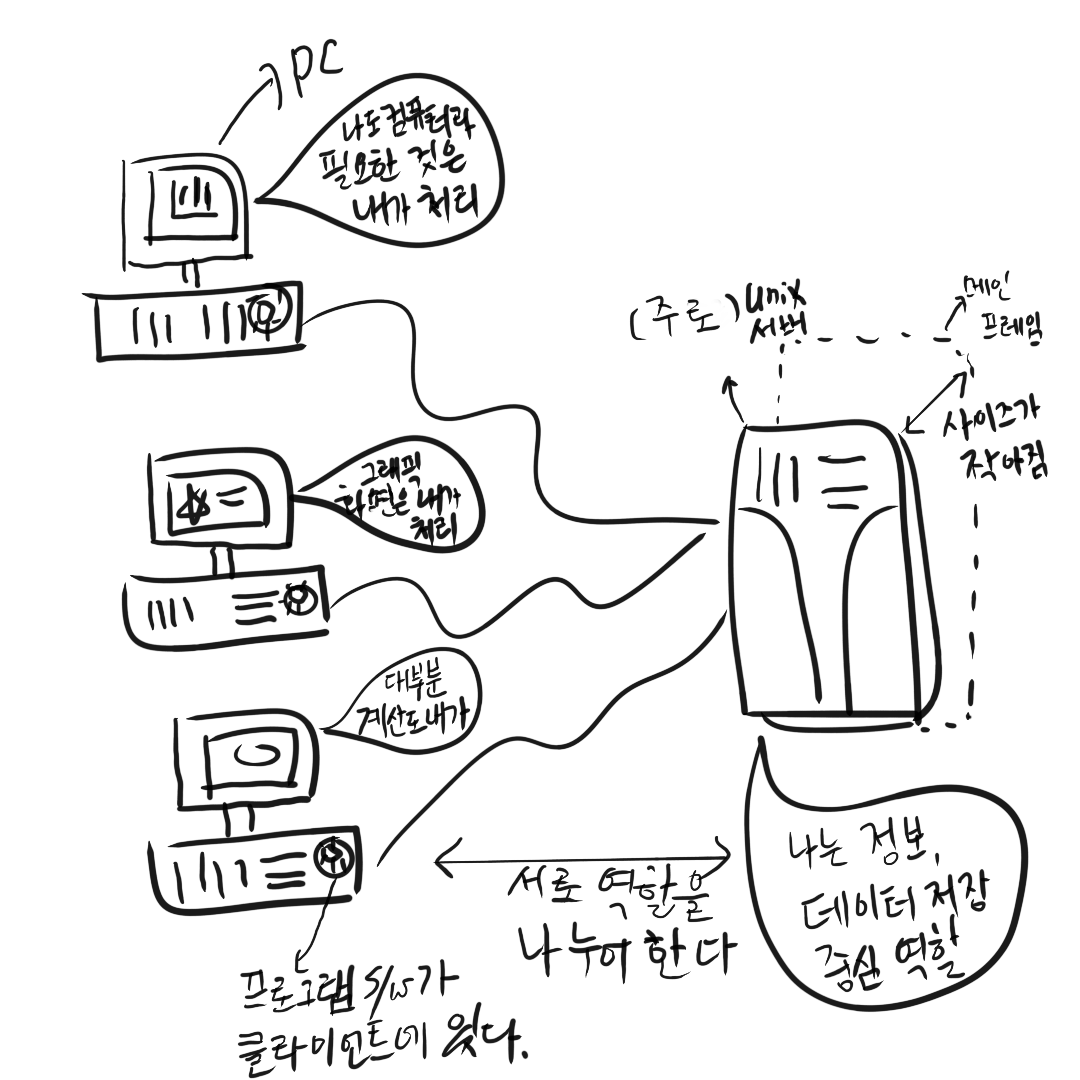 PC
나도 컴퓨터라
필요한 것은
내가 처리
(주로) unix
서버
메인
프레임
사이즈가
작아짐
그래픽
화면은 내가
처리
대부분
계산도 내가
서로 역할을
나누어 한다
나는 정보,
데이터 저장
중심 역할
프로그램 S/W가
클라이언트에 있다.